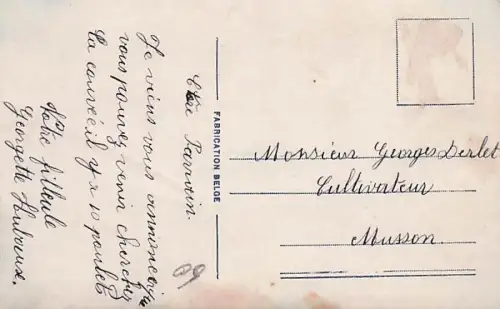 Cher Parrain.
Je viens vous annoncer que
vous pouvez venir cherchez
la couvée il y a 10 poulets
Votre filleule
Georgette Hubeaux.
FABRICATION BELGE
Monsieur Georges Derlet
Cultivateur
Musson.
09